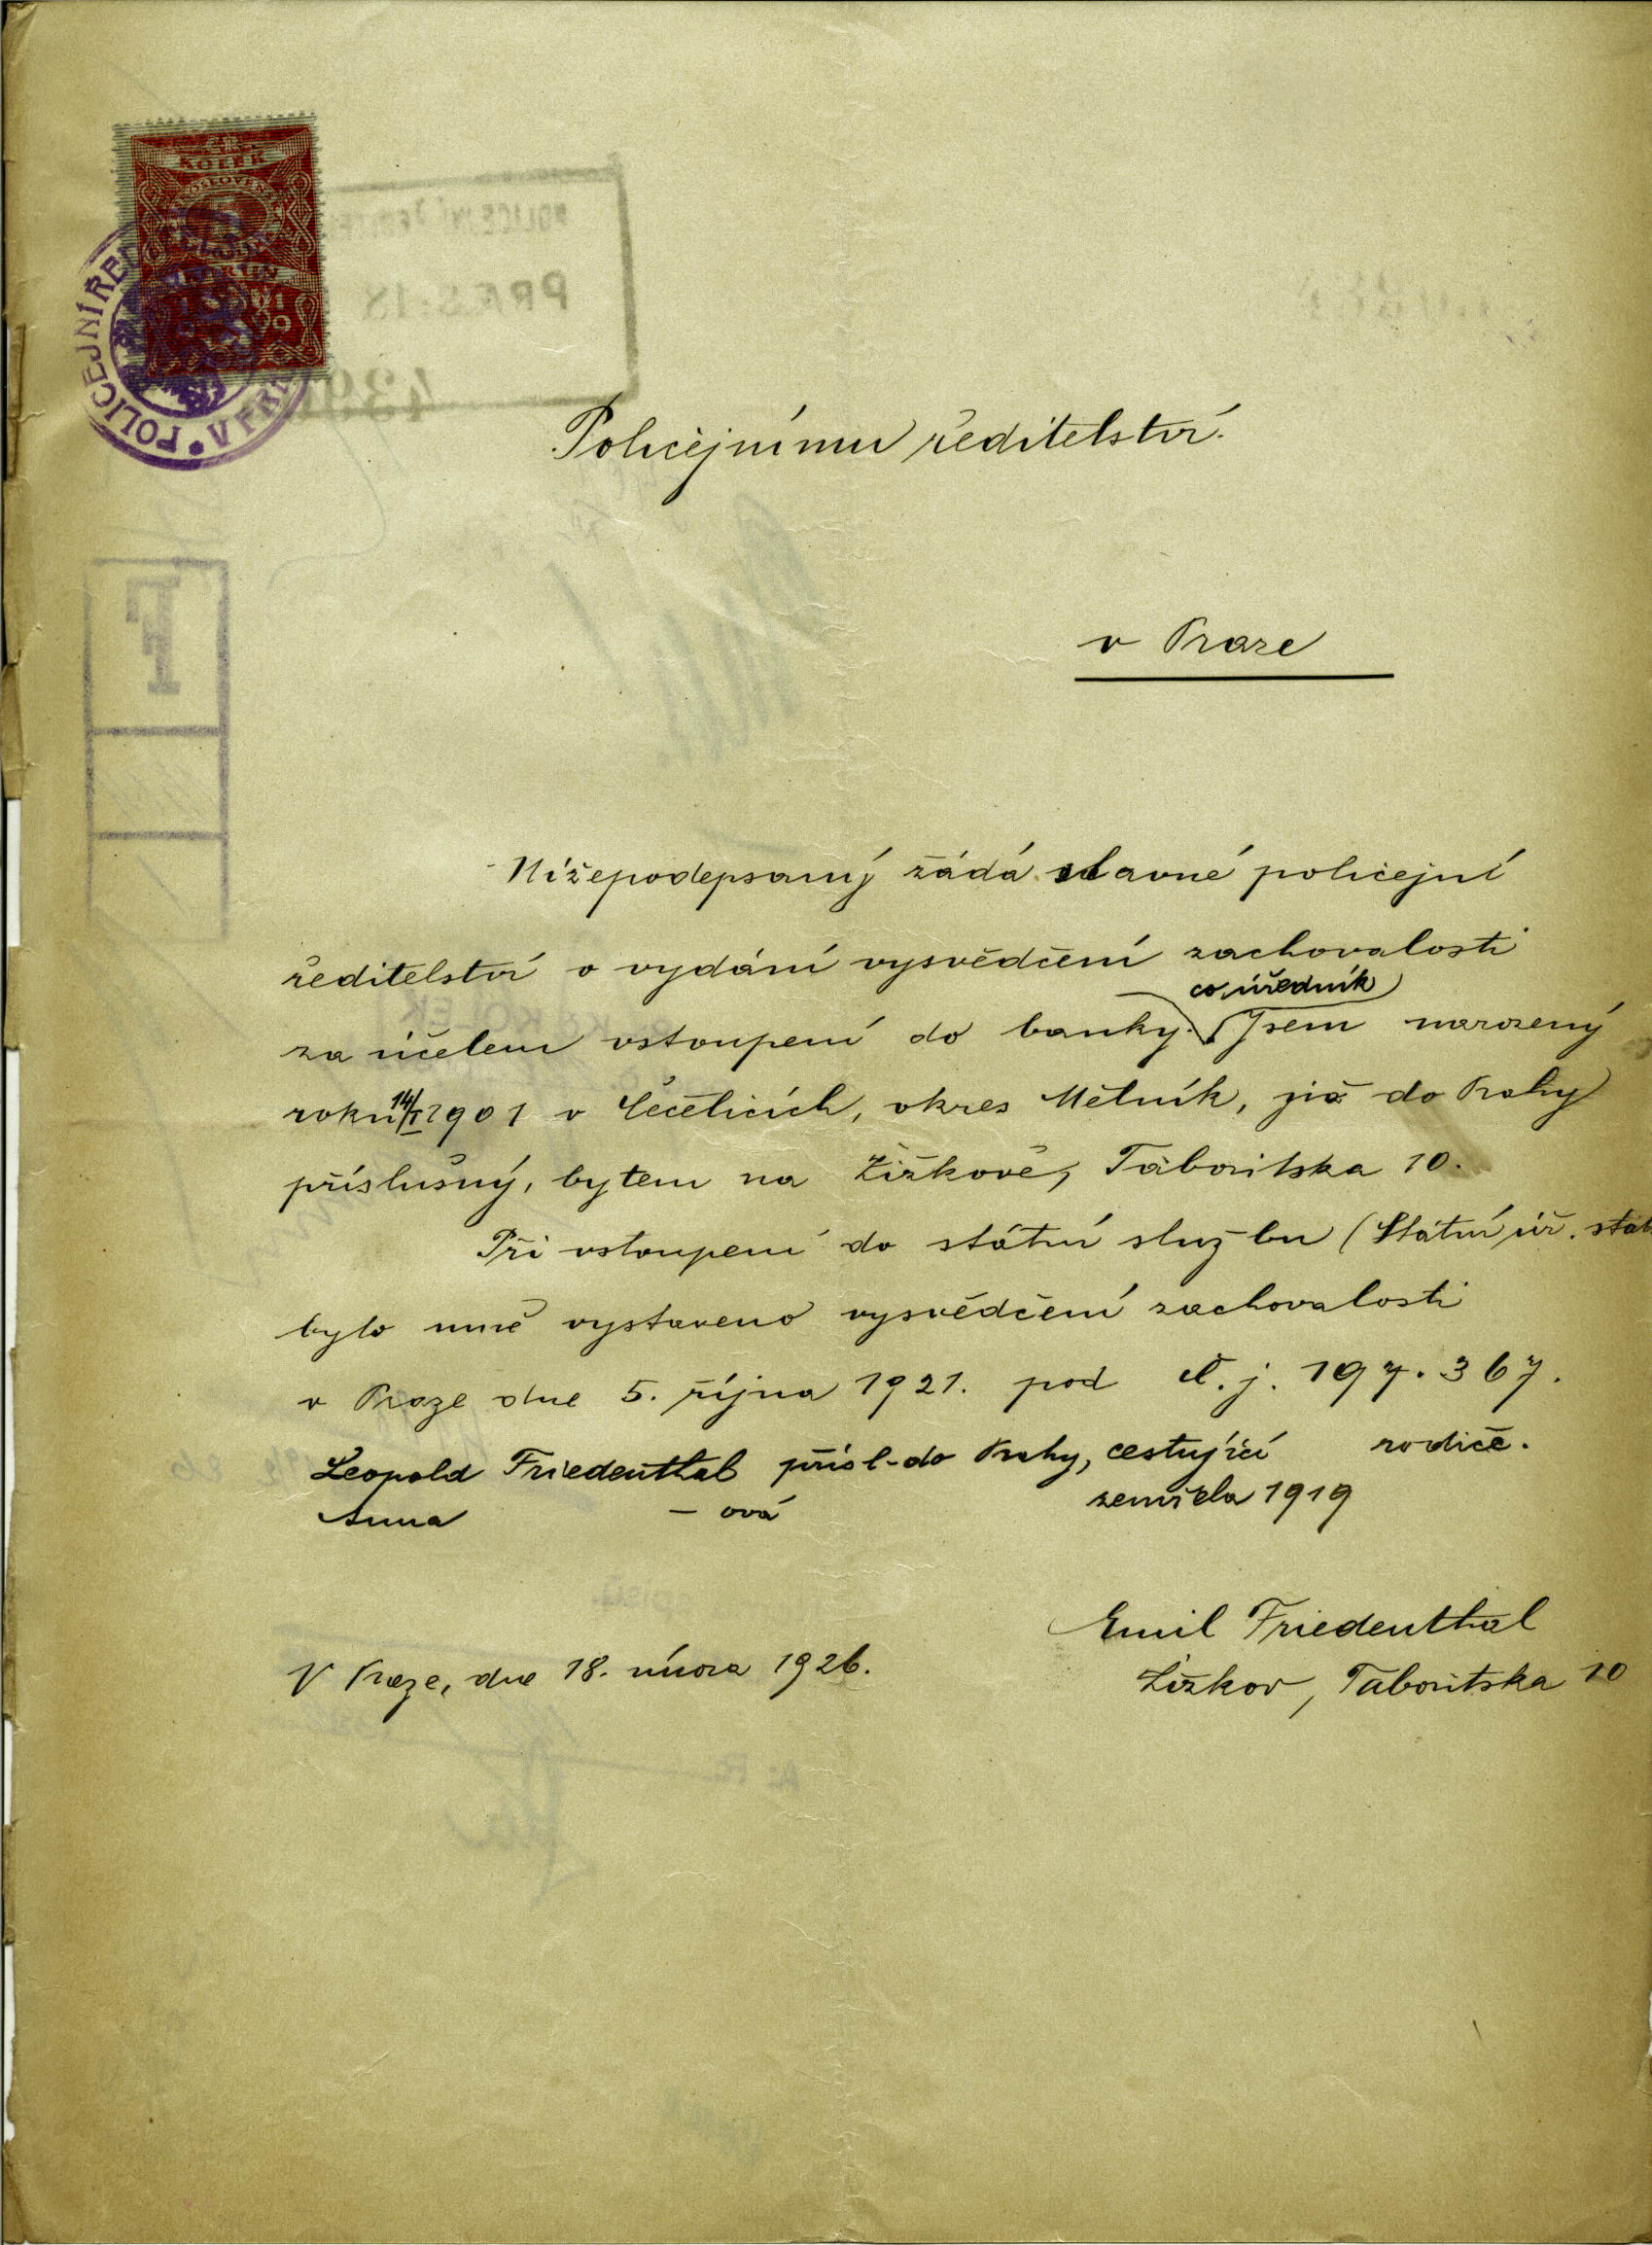 KOLEK
1919
POLICEJNÍ ŘED
Policejnímu ředitelství.
v Praze
Nížepodepsaný žádá slavné policejní
ředitelství o vydání vysvědčení zachovalosti
co úředník
za účelem vstoupení do banky. Jsem narozený
roku 14/I 1901 v Čečelicích, okres Mělník, jsa do Prahy
příslušný, bytem na Žižkově, Táboritska 10.
Při vstoupení do státní službu (Státní úř. stat.
bylo mně vystaveno vysvědčení zachovalosti
v Praze dne 5. října 1921. pod č. j. 197.367.
Leopold Friedenthal přísl. do Prahy, cestující rodiče.
Anna – ová zemřela 1919
Emil Friedenthal
V Praze, dne 18. února 1926.
Žižkov, Taboritska 10